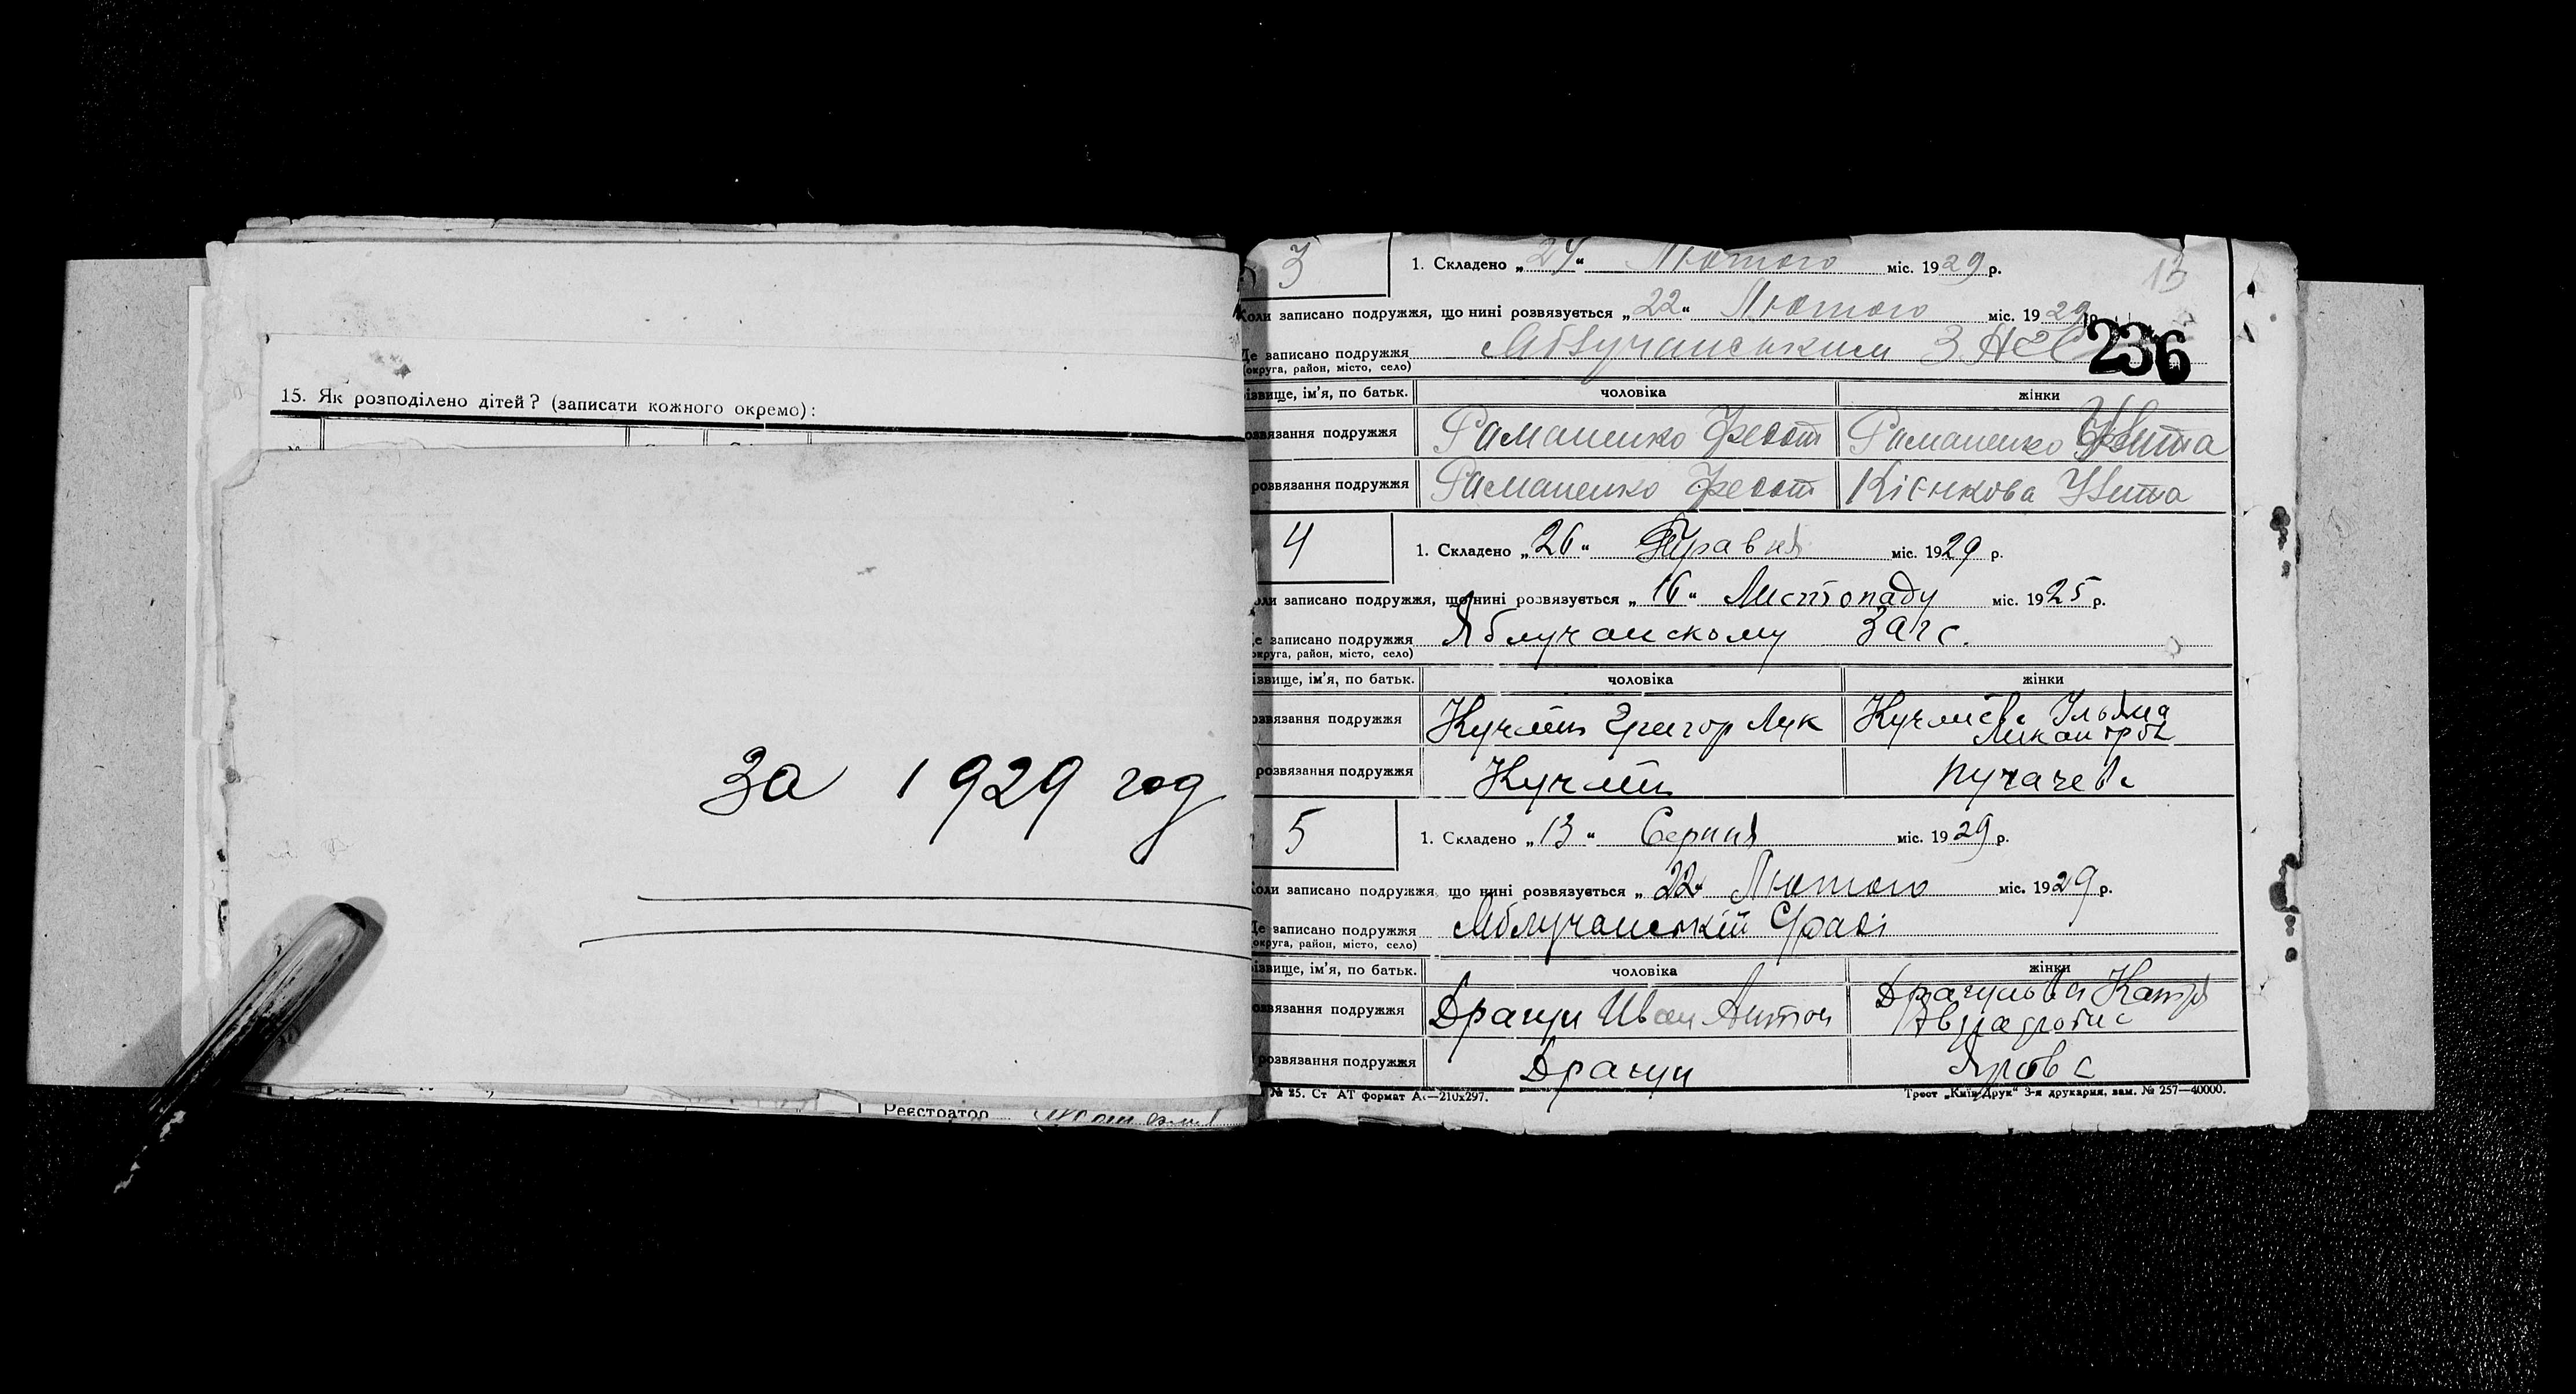 15. Як розподілено дітей? (записати кожного окремо):
За 1929 год
Реєстратор
3
1. Складено „24“ Лютого міс. 1929 р.
13
Коли записано подружжя, що нині розвязується „22“ Лютого міс. 1929 р.
236
Де записано подружжя Яблучанським ЗАГС
(округа, район, місто, село)
ізвище, ім'я, по батьк. чоловіка жінки
озвязання подружжя Раманенко Федот Раманенко
розвязання подружжя Раманенко Федот Кієнкова
4
1. Складено „26“ Травня міс. 1929 р.
оли записано подружжя, що нині розвязується „16“ Листопаду міс. 1925 р.
е записано подружжя Яблучанскому Загс.
округа, район, місто, село)
ізвище, ім'я, по батьк. чоловіка жінки
озвязання подружжя Григор Лук Ульяна
розвязання подружжя Пугачева
5
1. Складено „13“ Серпня міс. 1929 р.
Коли записано подружжя, що нині розвязується „22“ Лютого міс. 1929 р.
Де записано подружжя Яблучанській Сраді
(округа, район, місто, село)
ізвище, ім'я, по батьк. чоловіка жінки
озвязання подружжя Драгун Иван Антон Драгунова Катря
розвязання подружжя Драгун
№ 25. Ст АТ формат А—210х297. Трест „Київ-Друк“ 3-я друкарня, зам. № 257—40000.